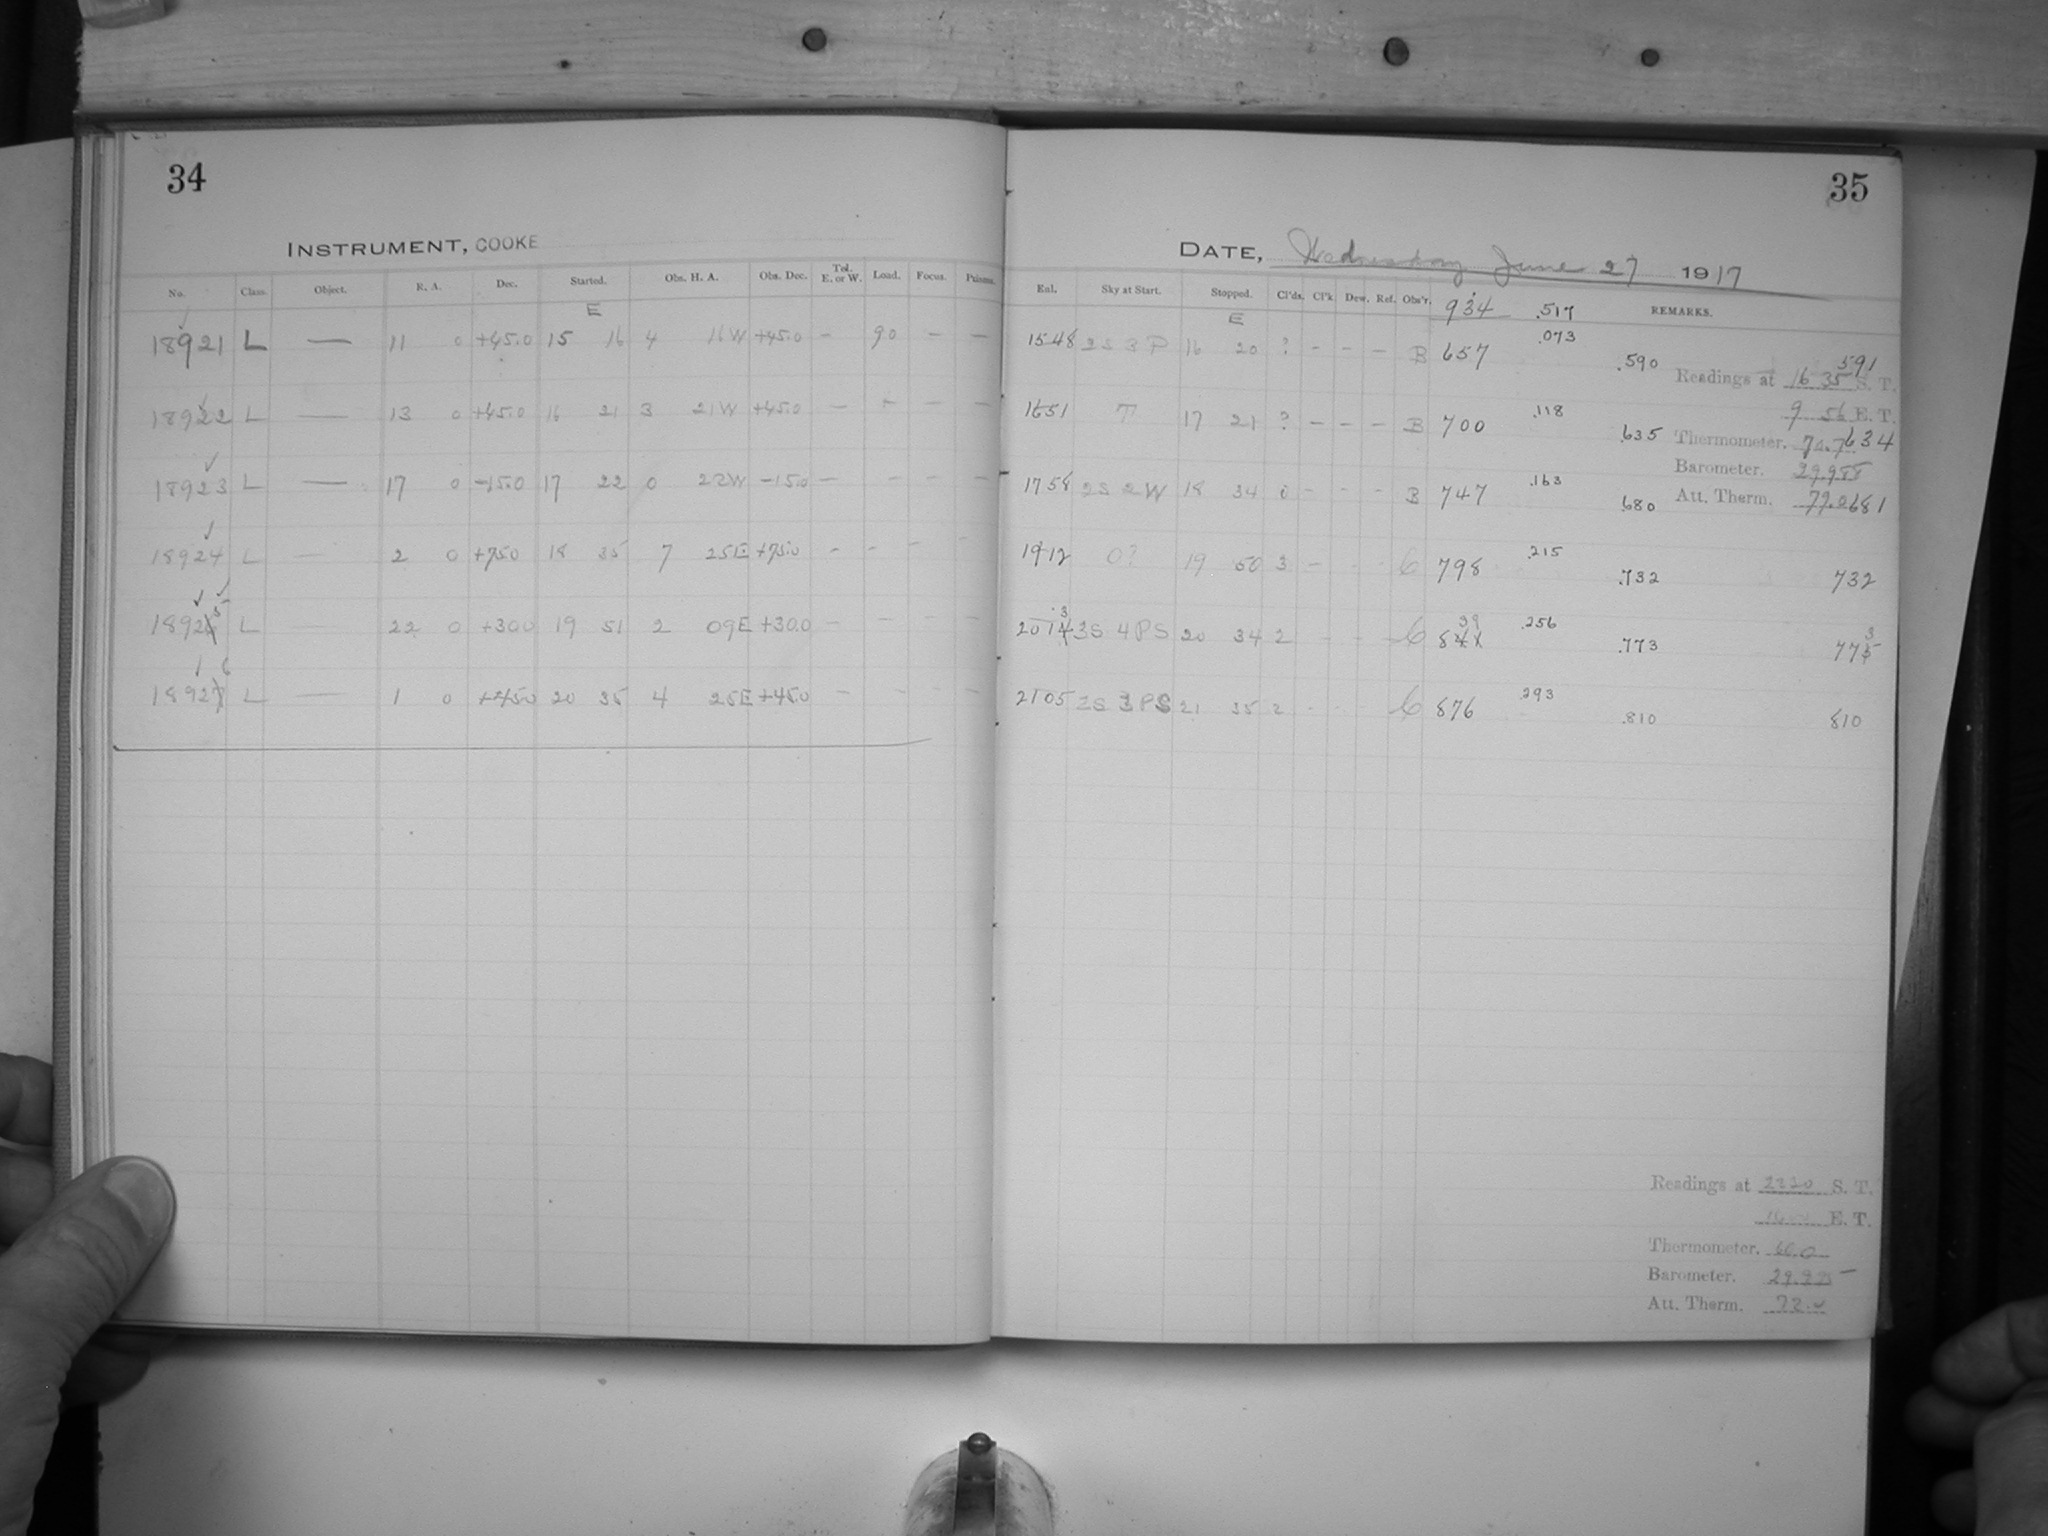 34
INSTRUMENT, COOKE
No. Class. Object. R. A. Dec. Started. Obs. H. A. Obs. Dec. Tel. E. or W. Load. Focus. Prisms.
E
18921 L — 11 0 +45.0 15 16 4 16W +45.0 — 90 — —
18922 L — 13 0 +45.0 16 21 3 21W +45.0 — — — —
18923 L — 17 0 -15.0 17 22 0 22W -15.0 — — — —
18924 L — 2 0 +75.0 18 35 7 25E +75.0 — — — —
18925 L — 22 0 +30.0 19 51 2 09E +30.0 — — — —
18926 L — 1 0 +45.0 20 35 4 25E +45.0 — — — —
35
DATE, Wednesday June 27 1917
Eql. Sky at Start. Stopped. Cl'ds. Cl'k Dew. Ref. Obs'r. 934 .517 REMARKS.
E
1548 2S 3P 16 20 ? – – – B 657 .073 .590 591
Readings at 16 35 S. T.
9 56 E. T.
1651 17 21 ? – – – B 700 .118 .635 634
Thermometer. 70.7
Barometer. 29.988
Att. Therm. 77.0
1758 2S 2W 18 34 0 – – – B 747 .163 .680 681
1912 0? 19 50 3 – – – C 798 .215 .732 732
2013 3S 4PS 20 34 2 – – – C 839 .256 .773 773
2105 2S 3PS 21 35 2 – – – C 876 .293 .810 810
Readings at 2220 S. T.
E. T.
Thermometer. 66.0
Barometer.
Att. Therm.